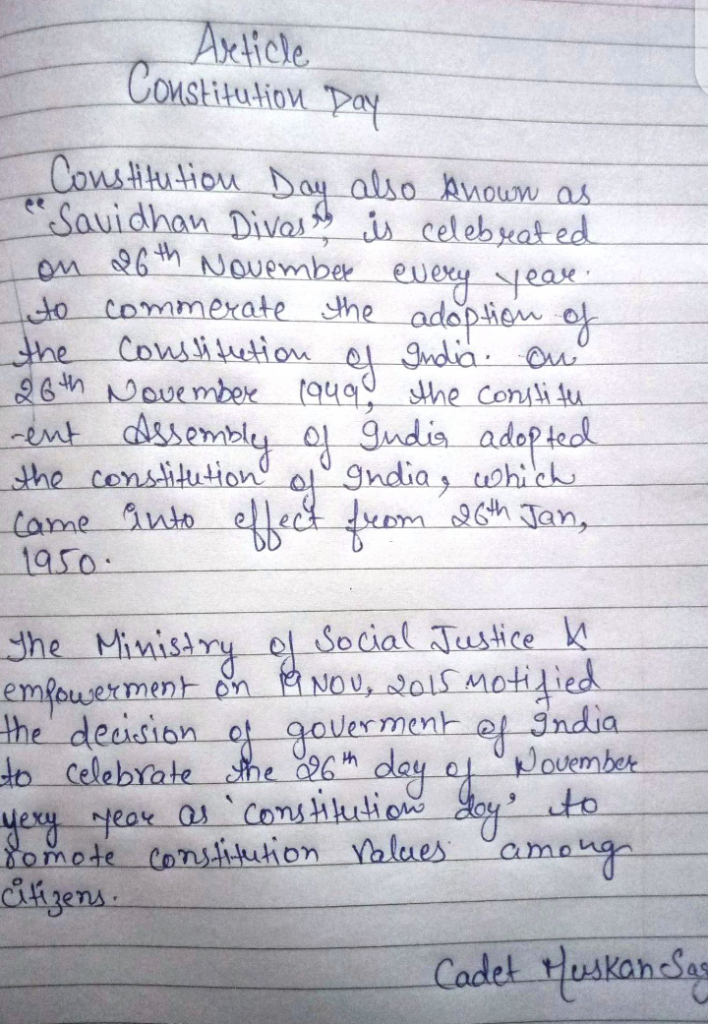 Article
Constitution Day
Constitution Day also known as
"Savidhan Divas", is celebrated
on 26th November every year.
to commerate the adoption of
the Constitution of India. On
26th November 1949, the constitu
-ent Assembly of India adopted
the constitution of India, which
came into effect from 26th Jan,
1950.
The Ministry of Social Justice &
empowerment on 19 Nov, 2015 Motified
the decision of goverment of India
to celebrate the 26th day of November
very year as 'constitution day' to
romote constitution Values among
citizens.
Cadet Muskan Sag